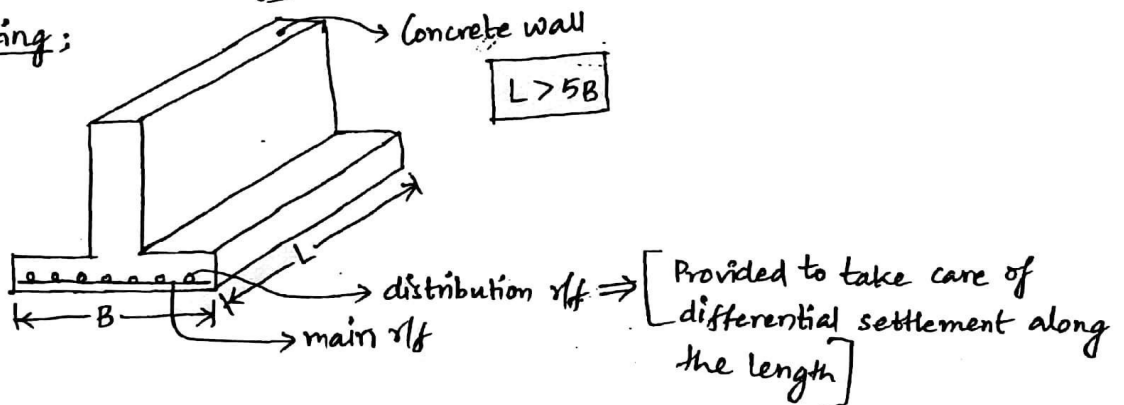 ing ;
Concrete wall
L > 5B
L
distribution r/f ⇒ [Provided to take care of
differential settlement along
the length]
B
main r/f